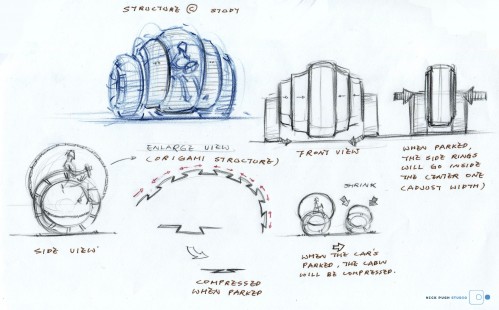 STRUCTURE © STUDY
ENLARGE VIEW
(ORIGAMI STRUCTURE)
FRONT VIEW
WHEN PARKED,
THE SIDE RINGS
WILL GO INSIDE
THE CENTER ONE
(ADJUST WIDTH)
SIDE VIEW
SHRINK
COMPRESSED
WHEN PARKED
WHEN THE CAR'S
PARKED, THE CABIN
WILL BE COMPRESSED.
NICE PUSH STUDIO